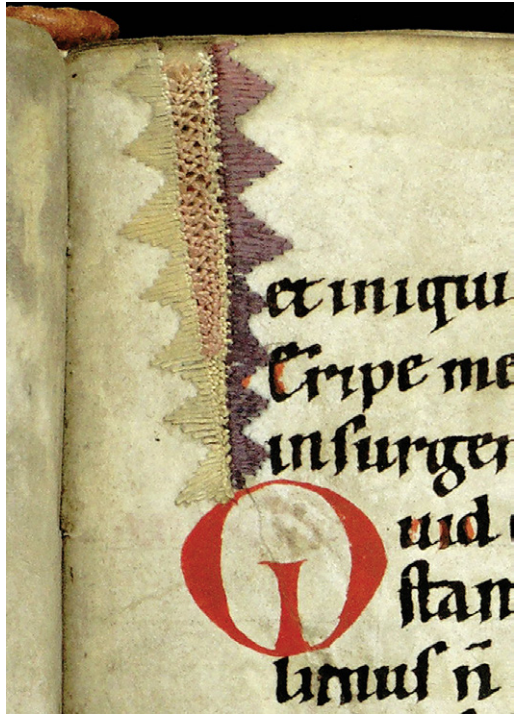 et iniqui
Eripe me
insurgen
Quid
stan
lienus n̄